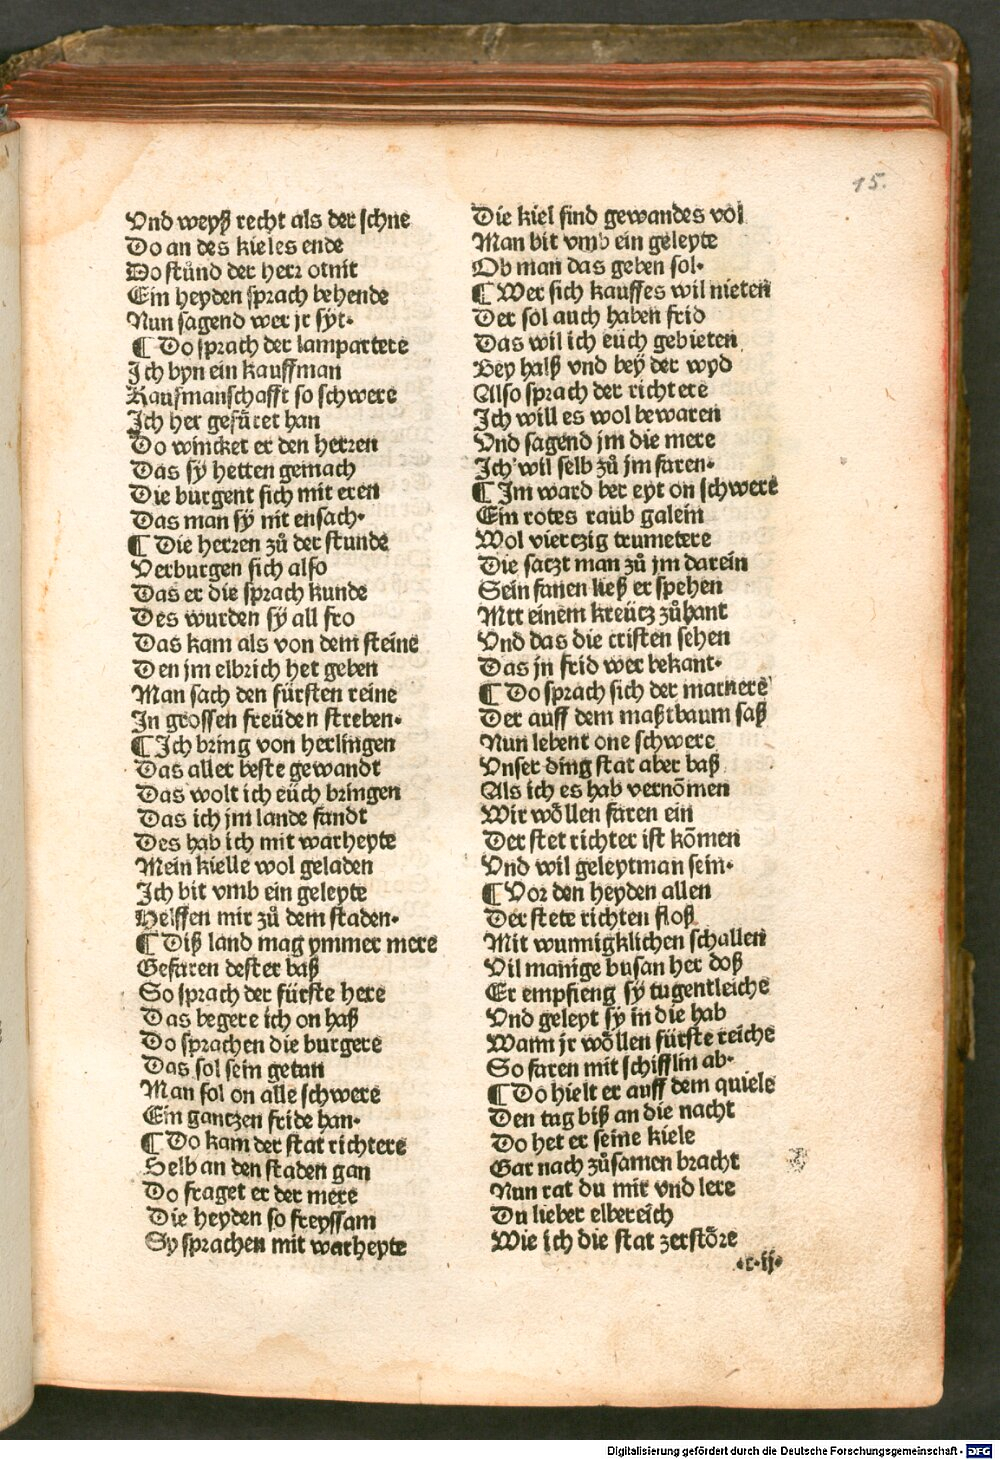 15.
Vnd weyß recht als der schne
Do an des kieles ende
Do stůnd der herr otnit
Ein heyden sprach behende
Nun sagend wer jr syt.
¶ Do sprach der lampartere
Ich byn ein kauffman
Kaufmanschafft so schwere
Ich her gefüret han
Do wincket er den herren
Das sy hetten gemach
Die burgent sich mit eren
Das man sy nit ensach.
¶ Die herren zů der stunde
Verburgen sich also
Das er die sprach kunde
Des wurden sy all fro
Das kam als von dem steine
Den jm elbrich het geben
Man sach den fürsten reine
In grossen freüden streben.
¶ Ich bring von herlingen
Das aller beste gewandt
Das wolt ich eüch bringen
Das ich jm lande fandt
Des hab ich mit warheyte
Mein kielle wol geladen
Ich bit vmb ein geleyte
Helffen mir zů dem staden.
¶ Diß land mag ymmer mere
Gefaren dester baß
So sprach der fürste here
Das begere ich on haß
Do sprachen die burgere
Das sol sein getan
Man sol on alle schwere
Ein gantzen fride han.
¶ Do kam der stat richtere
Selb an den staden gan
Do fraget er der mere
Die heyden so freyssam
Sy sprachen mit warheyte
Die kiel sind gewandes vol
Man bit vmb ein geleyte
Ob man das geben sol.
¶ Wer sich kauffes wil nieten
Der sol auch haben frid
Das wil ich eüch gebieten
Bey halß vnd bey der wyd
Also sprach der richtere
Ich will es wol bewaren
Vnd sagend jm die mere
Ich wil selb zů jm faren.
¶ Im ward ber eyt on schwere
Ein rotes raub galein
Wol viertzig trumetere
Die satzt man zů jm darein
Sein fanen ließ er spehen
Mit einem kreütz zůhant
Vnd das die cristen sehen
Das jn frid wer bekant.
¶ Do sprach sich der marnere
Der auff dem maßtbaum saß
Nun lebent one schwere
Vnser ding stat aber baß
Als ich es hab vernōmen
Wir wöllen faren ein
Der stet richter ist kōmen
Vnd wil geleytman sein.
¶ Vor den heyden allen
Der stete richten floß
Mit wunnigklichen schallen
Vil manige busan her doß
Er empfieng sy tugentleiche
Vnd geleyt sy in die hab
Wann jr wöllen fürste reiche
So faren mit schifflin ab.
¶ Do hielt er auff dem quiele
Den tag biß an die nacht
Do het er seine kiele
Gar nach zůsamen bracht
Nun rat du mir vnd lere
Du lieber elbereich
Wie ich die stat zerstöre
.c.ij.
Digitalisierung gefördert durch die Deutsche Forschungsgemeinschaft - DFG